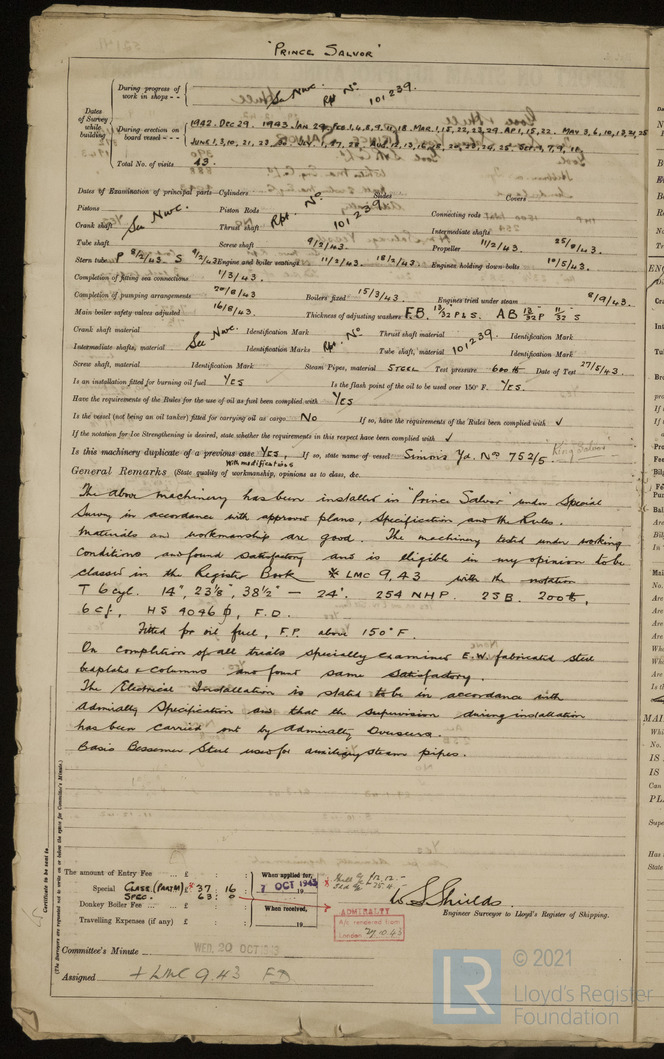 "PRINCE SALVOR"
During progress of work in shops - - See Nwc. Rpt No 101239.
Dates of Survey while building
During erection on board vessel - - - 1942. DEC 29. 1943. JAN 29. FEB 1,4,8,9,11,18. MAR. 1,15,22,23,29. AP. 1,15,22. MAY 3,6,10,13,31,25
JUNE 1,3,10,21,23,
Total No. of visits 43.
Dates of Examination of principal parts—Cylinders Slides Covers
Pistons Piston Rods Connecting rods
Crank shaft See Nwc. Thrust shaft Rpt. No. 101239 Intermediate shafts
Tube shaft Screw shaft 9/2/43. Propeller 11/2/43. 25/8/43.
Stern tube P 8/2/43. S 9/2/43 Engine and boiler seatings 11/2/43. 18/2/43. Engines holding down bolts 10/5/43.
Completion of fitting sea connections 1/3/43.
Completion of pumping arrangements 20/8/43 Boilers fixed 15/3/43. Engines tried under steam 8/9/43.
Main boiler safety valves adjusted 16/8/43. Thickness of adjusting washers F.B. 13/32 P & S. A B 13/32 P 11/32 S
Crank shaft material See Nwc. Identification Mark Thrust shaft material Identification Mark
Intermediate shafts, material Identification Marks Rpt. No Tube shaft, material 101239. Identification Mark
Screw shaft, material Identification Mark Steam Pipes, material STEEL Test pressure 600 lb Date of Test 27/5/43.
Is an installation fitted for burning oil fuel YES Is the flash point of the oil to be used over 150° F. YES.
Have the requirements of the Rules for the use of oil as fuel been complied with YES
Is the vessel (not being an oil tanker) fitted for carrying oil as cargo NO If so, have the requirements of the Rules been complied with ✓
If the notation for Ice Strengthening is desired, state whether the requirements in this respect have been complied with ✓
Is this machinery duplicate of a previous case YES, with modifications If so, state name of vessel Simons Yd. Nos 752/5. King Salvor
General Remarks (State quality of workmanship, opinions as to class, &c.
The above machinery has been installed in "Prince Salvor" under Special
Survey in accordance with approved plans, Specification and the Rules.
Materials and workmanship are good. The machinery tested under working
Conditions and found satisfactory and is eligible in my opinion to be
classed in the Register Book * LMC 9,43 with the notation
T 6 cyl. 14", 23 1/8", 38 1/2" — 24". 254 NHP. 2 S B. 200 lb,
6 cf, HS 4046 ф, F.D.
Fitted for oil fuel, F.P. above 150° F.
On completion of all trials specially examined E.W. fabricated steel
bedplates & columns and found same satisfactory.
The Electrical Installation is stated to be in accordance with
Admiralty Specification and that the supervision during installation
has been carried out by Admiralty Overseers.
Basic Bessemer Steel used for auxiliary steam pipes.
Certificate to be sent to
(The Surveyors are requested not to write on or below the space for Committee's Minute.)
The amount of Entry Fee ... £ : :
Special CLASS. (PART M) £* 37 : 16 :
SPEC. 63 : 0
Donkey Boiler Fee ... ... £ : :
Travelling Expenses (if any) £ : :
When applied for, 7 OCT 1943
When received, 19
W S Shields.
Engineer Surveyor to Lloyd's Register of Shipping.
ADMIRALTY
A/c rendered from
London 27.10.43
Committee's Minute WED. 20 OCT 1943
Assigned + LMC 9.43 FD
LR
© 2021
Lloyd's Register
Foundation